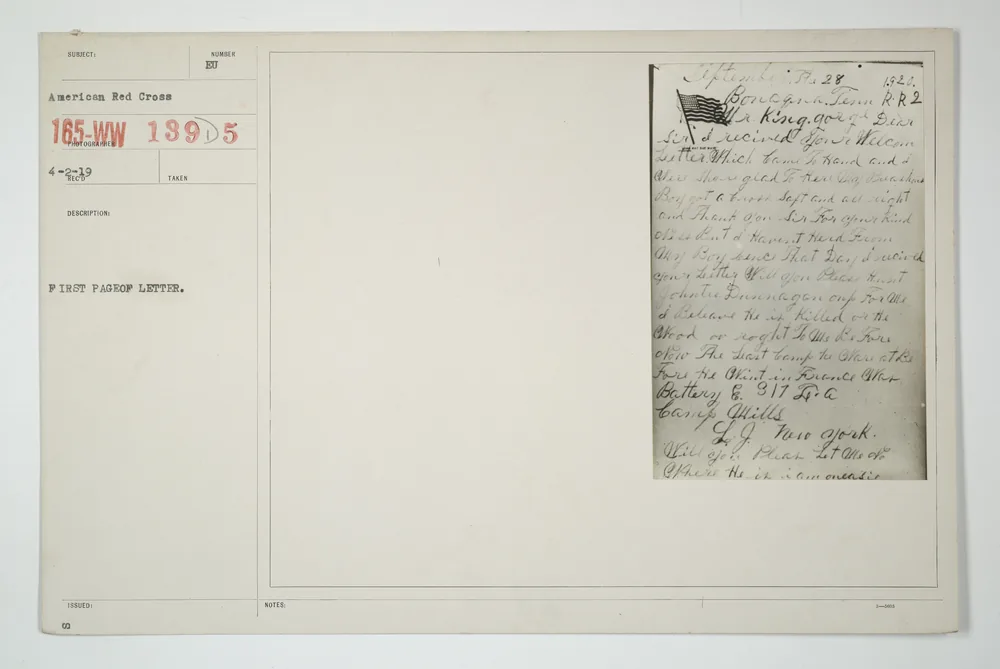 SUBJECT:
NUMBER
EU
American Red Cross
165-WW 139 D 5
PHOTOGRAPHER
4-2-19
REC'D
TAKEN
DESCRIPTION:
FIRST PAGEOF LETTER.
ISSUED:
NOTES:
The 28 1920.
Tenn R.R 2
Mr King. gorge Dear
Sir I recived your Welcom
Letter Which Came To Hand and I
Glad To Here My
Boy got a Cross Saft and all right
and Thank you Sir For your Kind
But I Havent Herd From
My Boy Sence That Day I recived
your Letter Will you Please Hunt
Johnie Dunnagan oup For Me
I Beleave He is Killed or He
Wood or roght To Me Be Fore
Now The Last Camp He Ware at Be
Fore He Wint in France Was
Battery E. 317 F.A
Camp Mills
L.J. New york.
Will you Pleas Let Me No
Where He is i am oneasie